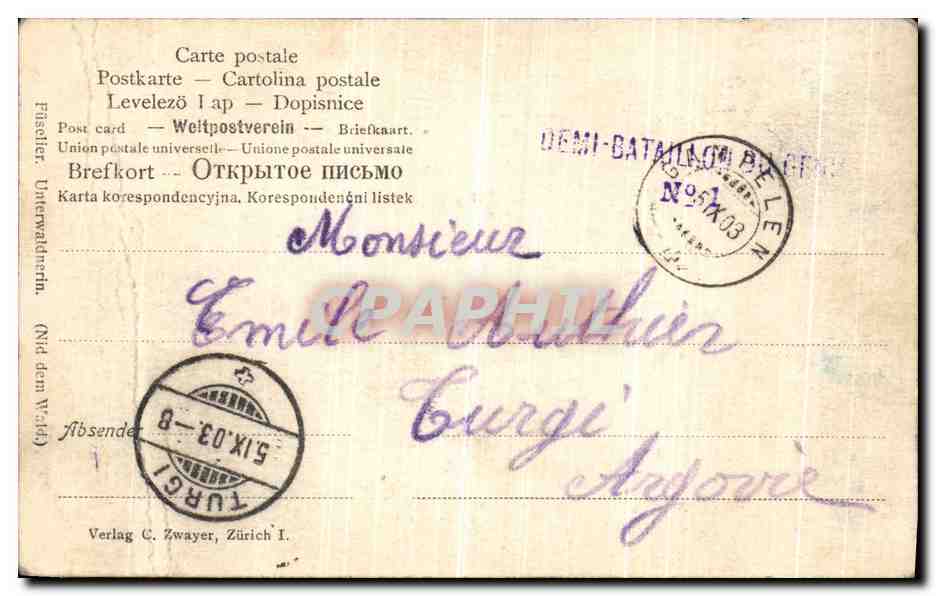 Carte postale
Postkarte — Cartolina postale
Levelező Lap — Dopisnice
Post card — Weltpostverein — Briefkaart.
Union postale universelle — Unione postale universale
Brefkort — Открытое письмо
Karta korespondencyjna. Korespondenční listek
Füselier. Unterwaldnerin. (Nid dem Wald.)
DEMI-BATAILLON DU GÉNIE
No 1
5 IX 03
Monsieur
Emile
Turgi
Argovie
CPAPHIL
Absender
5.IX.03.–8
TURGI
Verlag C. Zwayer, Zürich I.